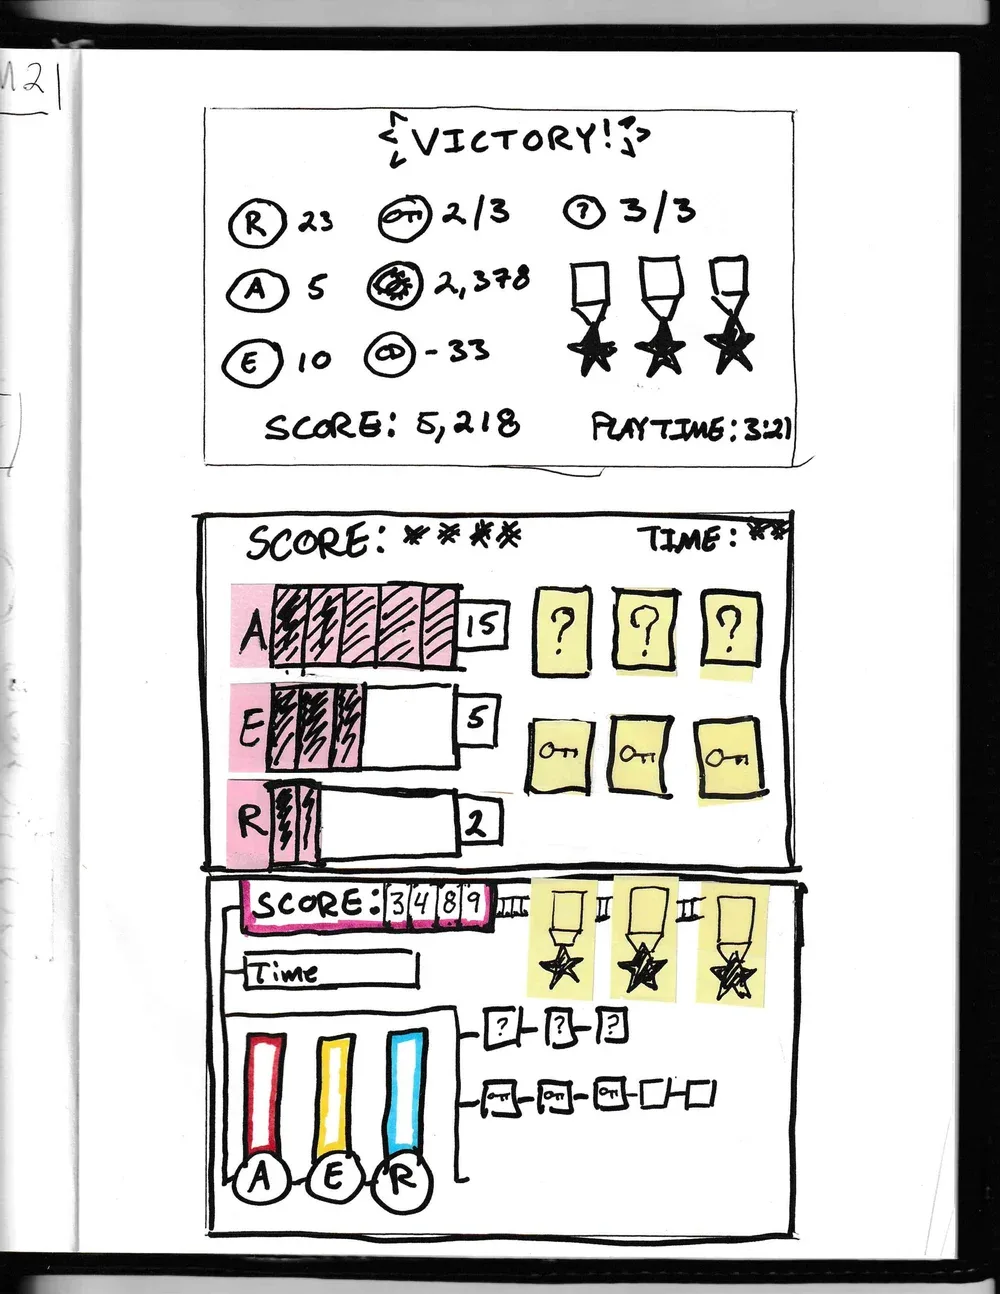 M2
VICTORY!
R 23 2/3 ? 3/3
A 5 2,378
E 10 CD -33
SCORE: 5,218 PLAYTIME: 3:21
SCORE: **** TIME: **
A 15 ? ? ?
E 5
R 2
SCORE: 3489
Time
? ? ?
A E R